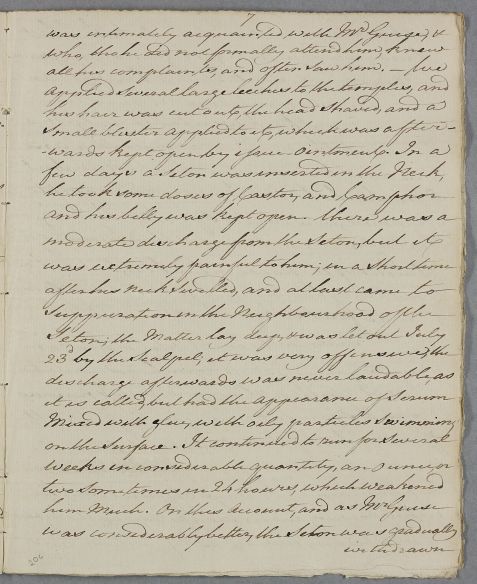 7
was intimately acquainted with Mr. Gruse, &
who, tho he did not formally attend him, knew
all his complaints, and often saw him. — We
applied several large leeches to the temples, and
his hair was cut out, the head shaved, and a
small blister applied to it, which was after-
-wards kept open by issue ointment. In a
few days a Seton was inserted in the Neck,
he took some doses of Castor, and Camphor
and his belly was kept open. there was a
moderate discharge from the Seton, but it
was extremely painful to him; in a short time
after his neck swelled, and at last came to
suppuration in the Neighbourhood of the
Seton; the Matter lay deep, & was let out July
23d by the Scalpel; it was very offensive, the
discharge afterwards was never laudable, as
it is called, but had the appearance of Serum
Mixed with with oily particles Swimming
on the Surface. It continued to run for several
weeks in considerable quantity, an ounce, or
two sometimes in 24 hours, which weakened
him Much. On this Account, and as Mr. Gruse
was considerably better, the Seton was gradually
withdrawn
206